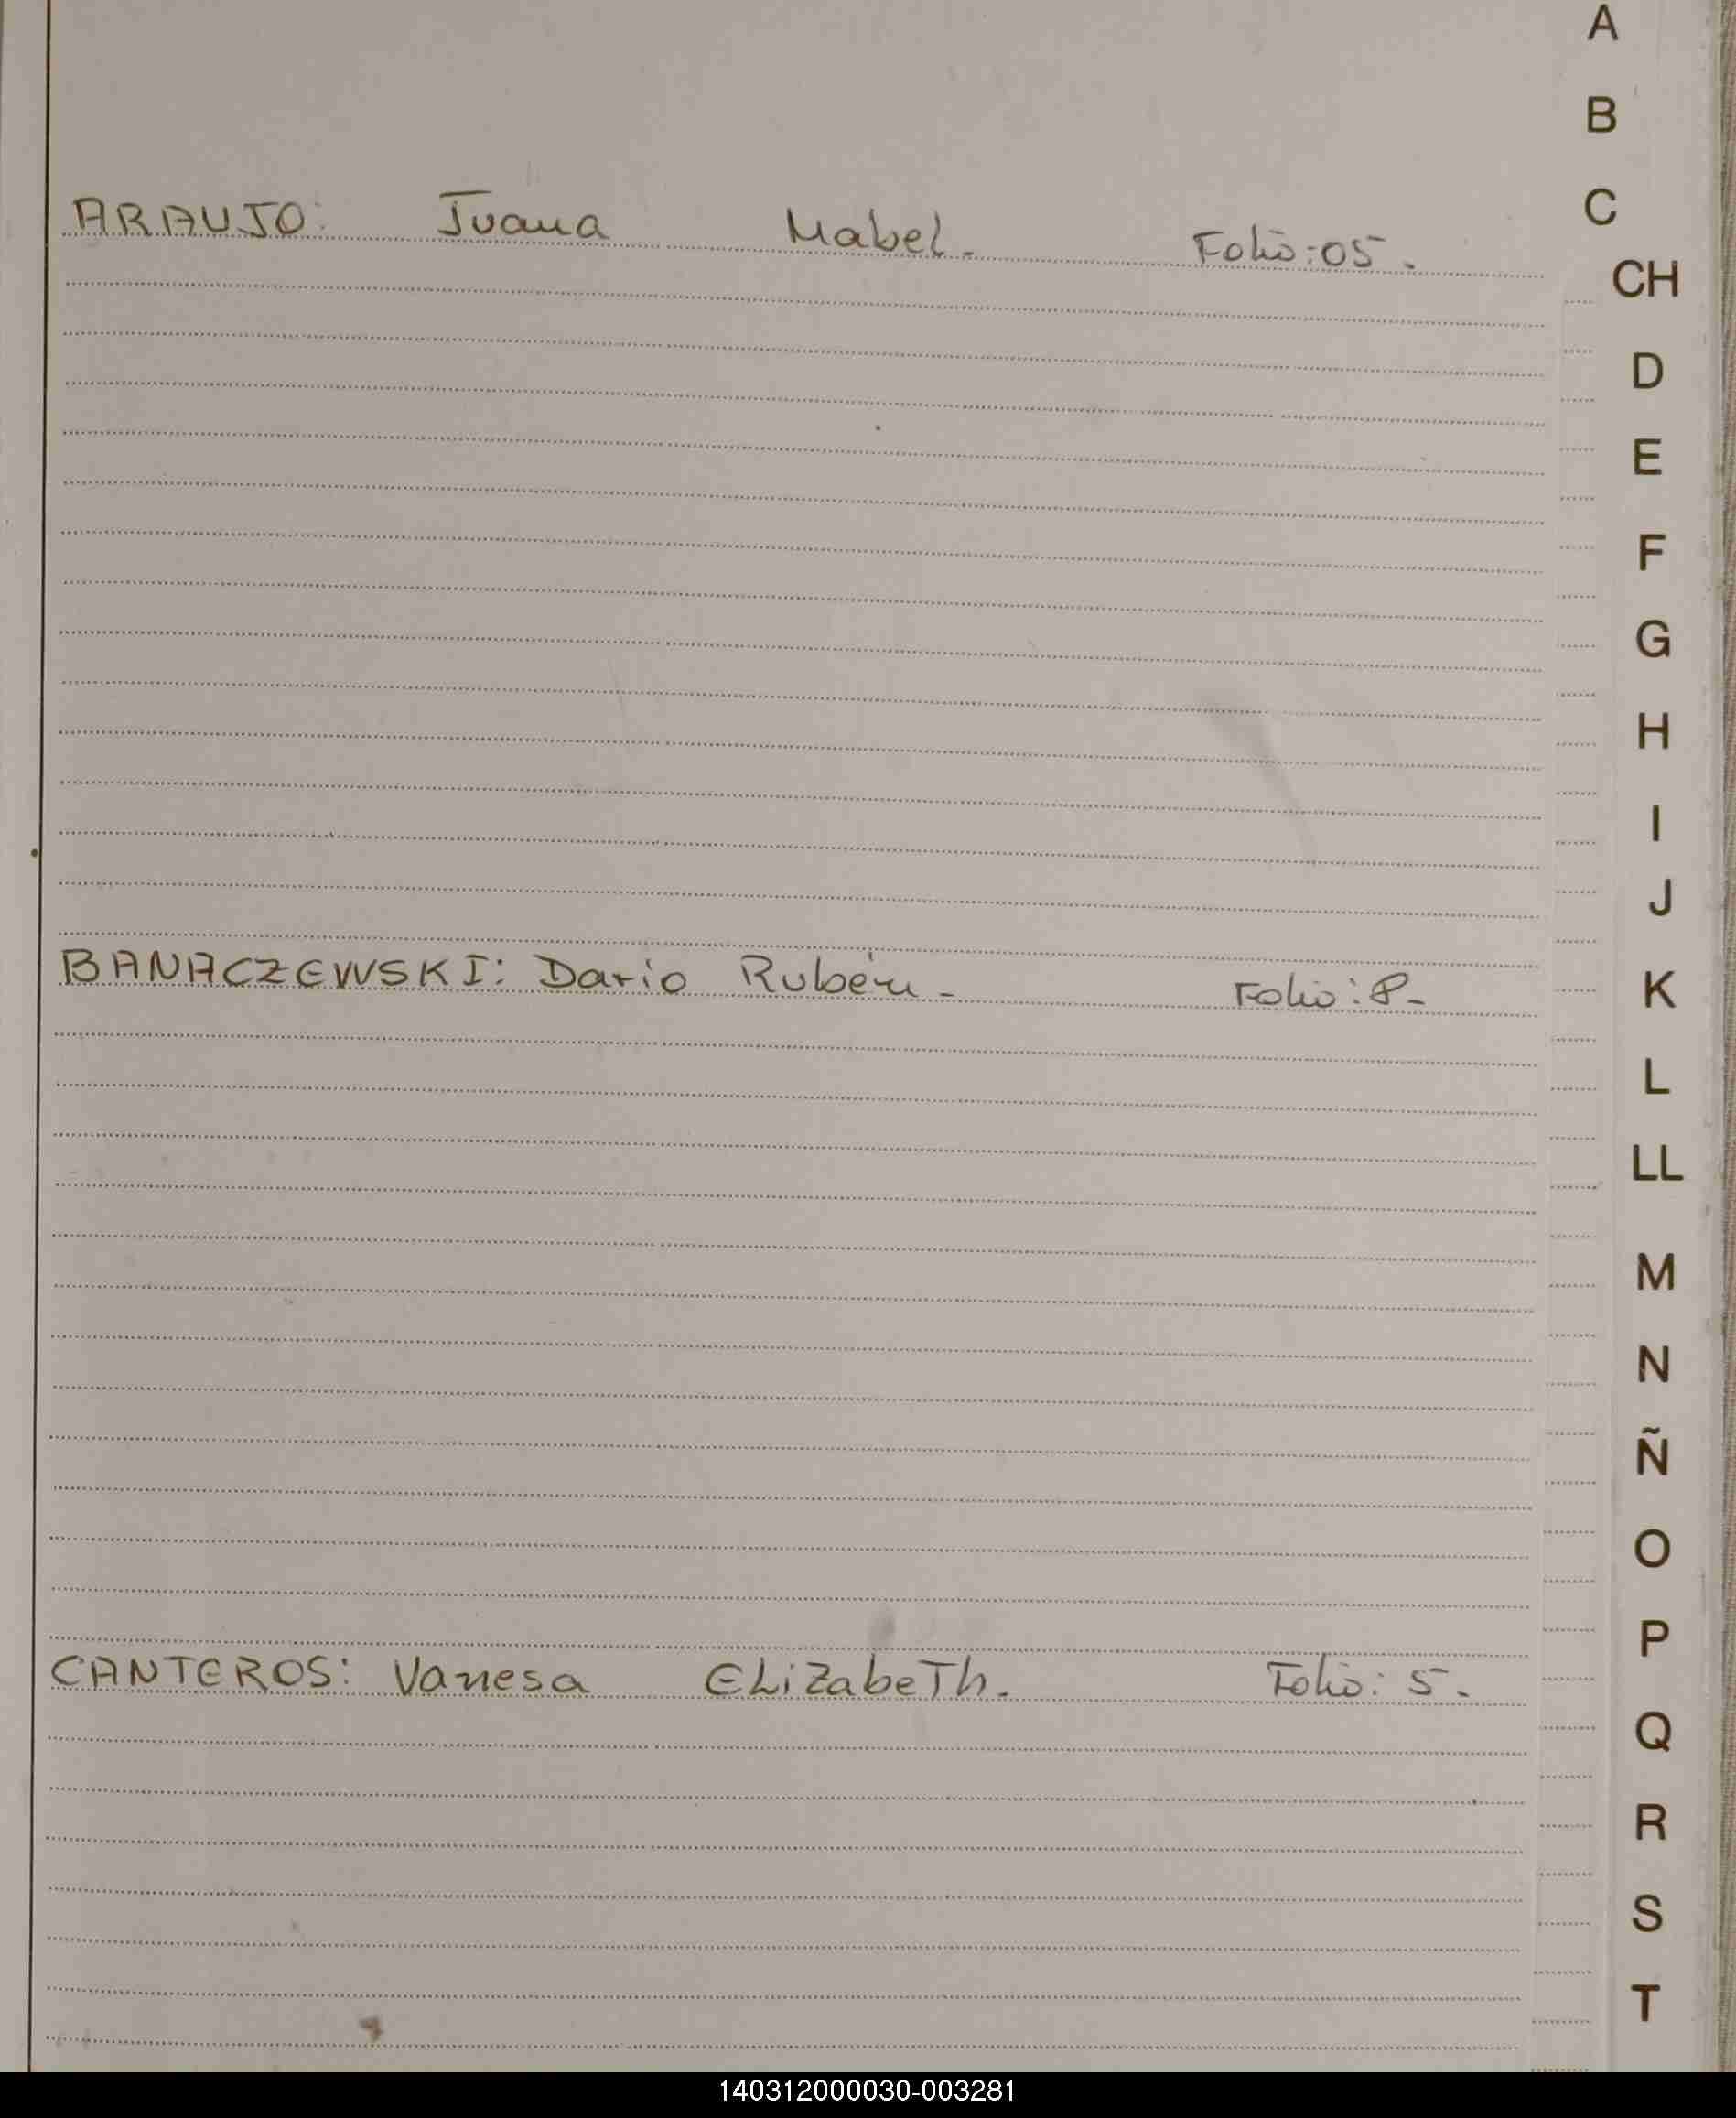 A
B
C
ARAUJO: Juana Mabel. Folio: 05.
CH
D
E
F
G
H
I
J
BANACZEWSKI: Dario Rubén - Folio: 8-
K
L
LL
M
N
Ñ
O
P
CANTEROS: Vanesa ELiZabeTh. Folio: 5.
Q
R
S
T
140312000030-003281